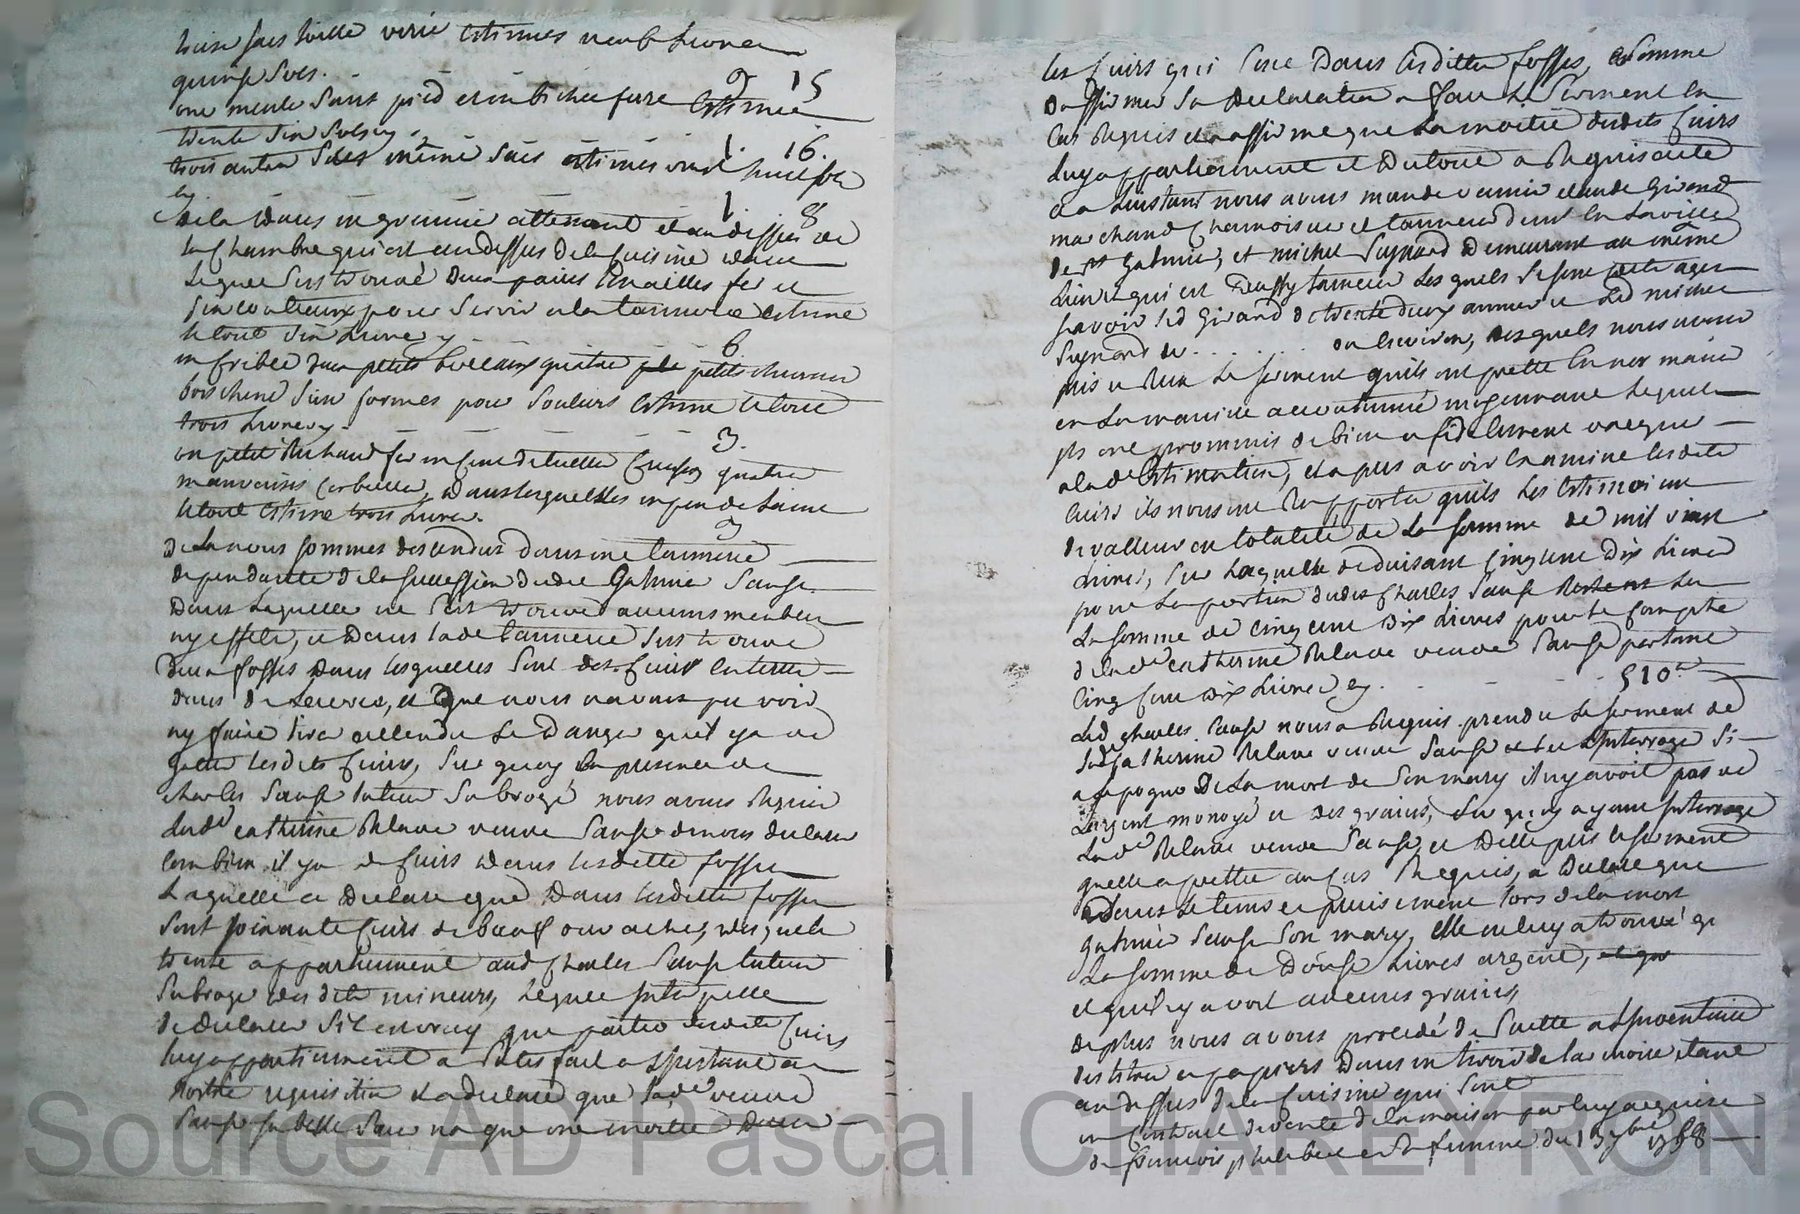 treise sacs toille verie estimes neuf Livres
quinse sols.
9 15
une meule sans pied et un bichet ferré Estimée
trente six sols cy.
1. 16.
trois autres même sacs estimes vint huit sols
cy
1 8
De la dans un grenier attenant et au dessus de
la Chambre qui est au dessus de la Cuisine dans
Lequel s'est trouvé deux paires tenailles fer et
six couteaux pour servir a la tannerie Estimé
le tout six Livres cy
6
un Crible deux petits quatre petits
bois chene six formes pour souliers Estimé le tout
trois Livres cy.
3.
un petit Rechaud fer quatre
mauvaises Corbeilles, dans lesquelles un peu de Laine
le tout Estimé trois Livres.
3
De La nous sommes descendus dans une tannerie
dependante de la succession dudit Gabriel Sause
Dans Laquelle ne s'est trouvé aucuns meubles
ny effets, et Dans lade tannerie s'est trouvé
deux fosses dans lesquelles sont des Cuirs
dans de Lecorce, et que nous navons pu voir
ny faire tirer attendu Le Danger quil y a de
gatter lesdits Cuirs, sur quoy en presence de
charles Sause tuteur subrogé nous avons Requis
Lade catherine Relave veuve Sause de nous declarer
Combien il y a de Cuirs dans lesdittes fosses
Laquelle a Declaré que Dans lesdittes fosses
sont soixante Cuirs de bœuf ou vaches, desquels
trente appartiennent aud Charles Sause tuteur
subrogé desdits mineurs, Lequel
de declarer s'il est vray que partie desdits Cuirs
luy appartiennent a satisfait a Linstant a
Nostre requisition et a declaré que lade veuve
Sause que une moitié Dans
les Cuirs qui sont Dans lesdittes fosses, et somme
D'affirmer sa Declaration a fait Le serment en
Cas Requis et a affirmé que La moitié desdits Cuirs
Luy appartiennent et Du tout a Requis acte
et a Linstant nous avons mandé venir claude Girand
marchand Chamoiseur et tanneur de la ville
de st Galmier, et michel Seynard Demeurant au même
Lieu et qui est aussy tanneur Les quels se sont
savoir led Girand de trente deux années et Led michel
Seynard de . . . . . . ou Environ, desquels nous avons
pris et Reçu Le serment quils ont pretté En nos mains
en La maniere accoutumée moyennant Lequel
ils ont prommis de bien et fidelement vacquer
a lade Estimation, et apres avoir Examiné lesdits
Cuirs ils nous ont Rapporté quils Les Estimoient
de valleur en totalité de La somme de mil vint
Livres, sur Laquelle deduisant Cinq cent Dix Livres
pour La portion dudit Charles Sause Reste
La somme de cinq cent dix Livres pour le Compte
de lade catherine Relave veuve Sause portant
Cinq Cent Dix Livres cy. 510tt
Led charles Sause nous a Requis prendre Le serment de
lade Catherine Relave veuve Sause et de Linterroger si
a Lepoque De La mort de son mary il ny avoit pas de
Largent monoyé et des grains, sur quoy ayant Interrogé
Lade Relave veuve Sause, et Delle pris le serment
quelle a pretté au Cas Requis, a Declaré que
Dans Le tems et precisement Lors de la mort
gabriel Sause son mary, elle na luy a trouvé q
La somme de Douse Livres argent,
et quil ny avoit aucuns grains,
de plus nous avons procedé de suitte a Linventaire
des titres et papiers Dans un tiroir de la moire etant
au dessus de la Cuisine qui sont
un Contrat de vente de la maison par luy acquise
de francois philebert et sa femme du 13 7bre 1758